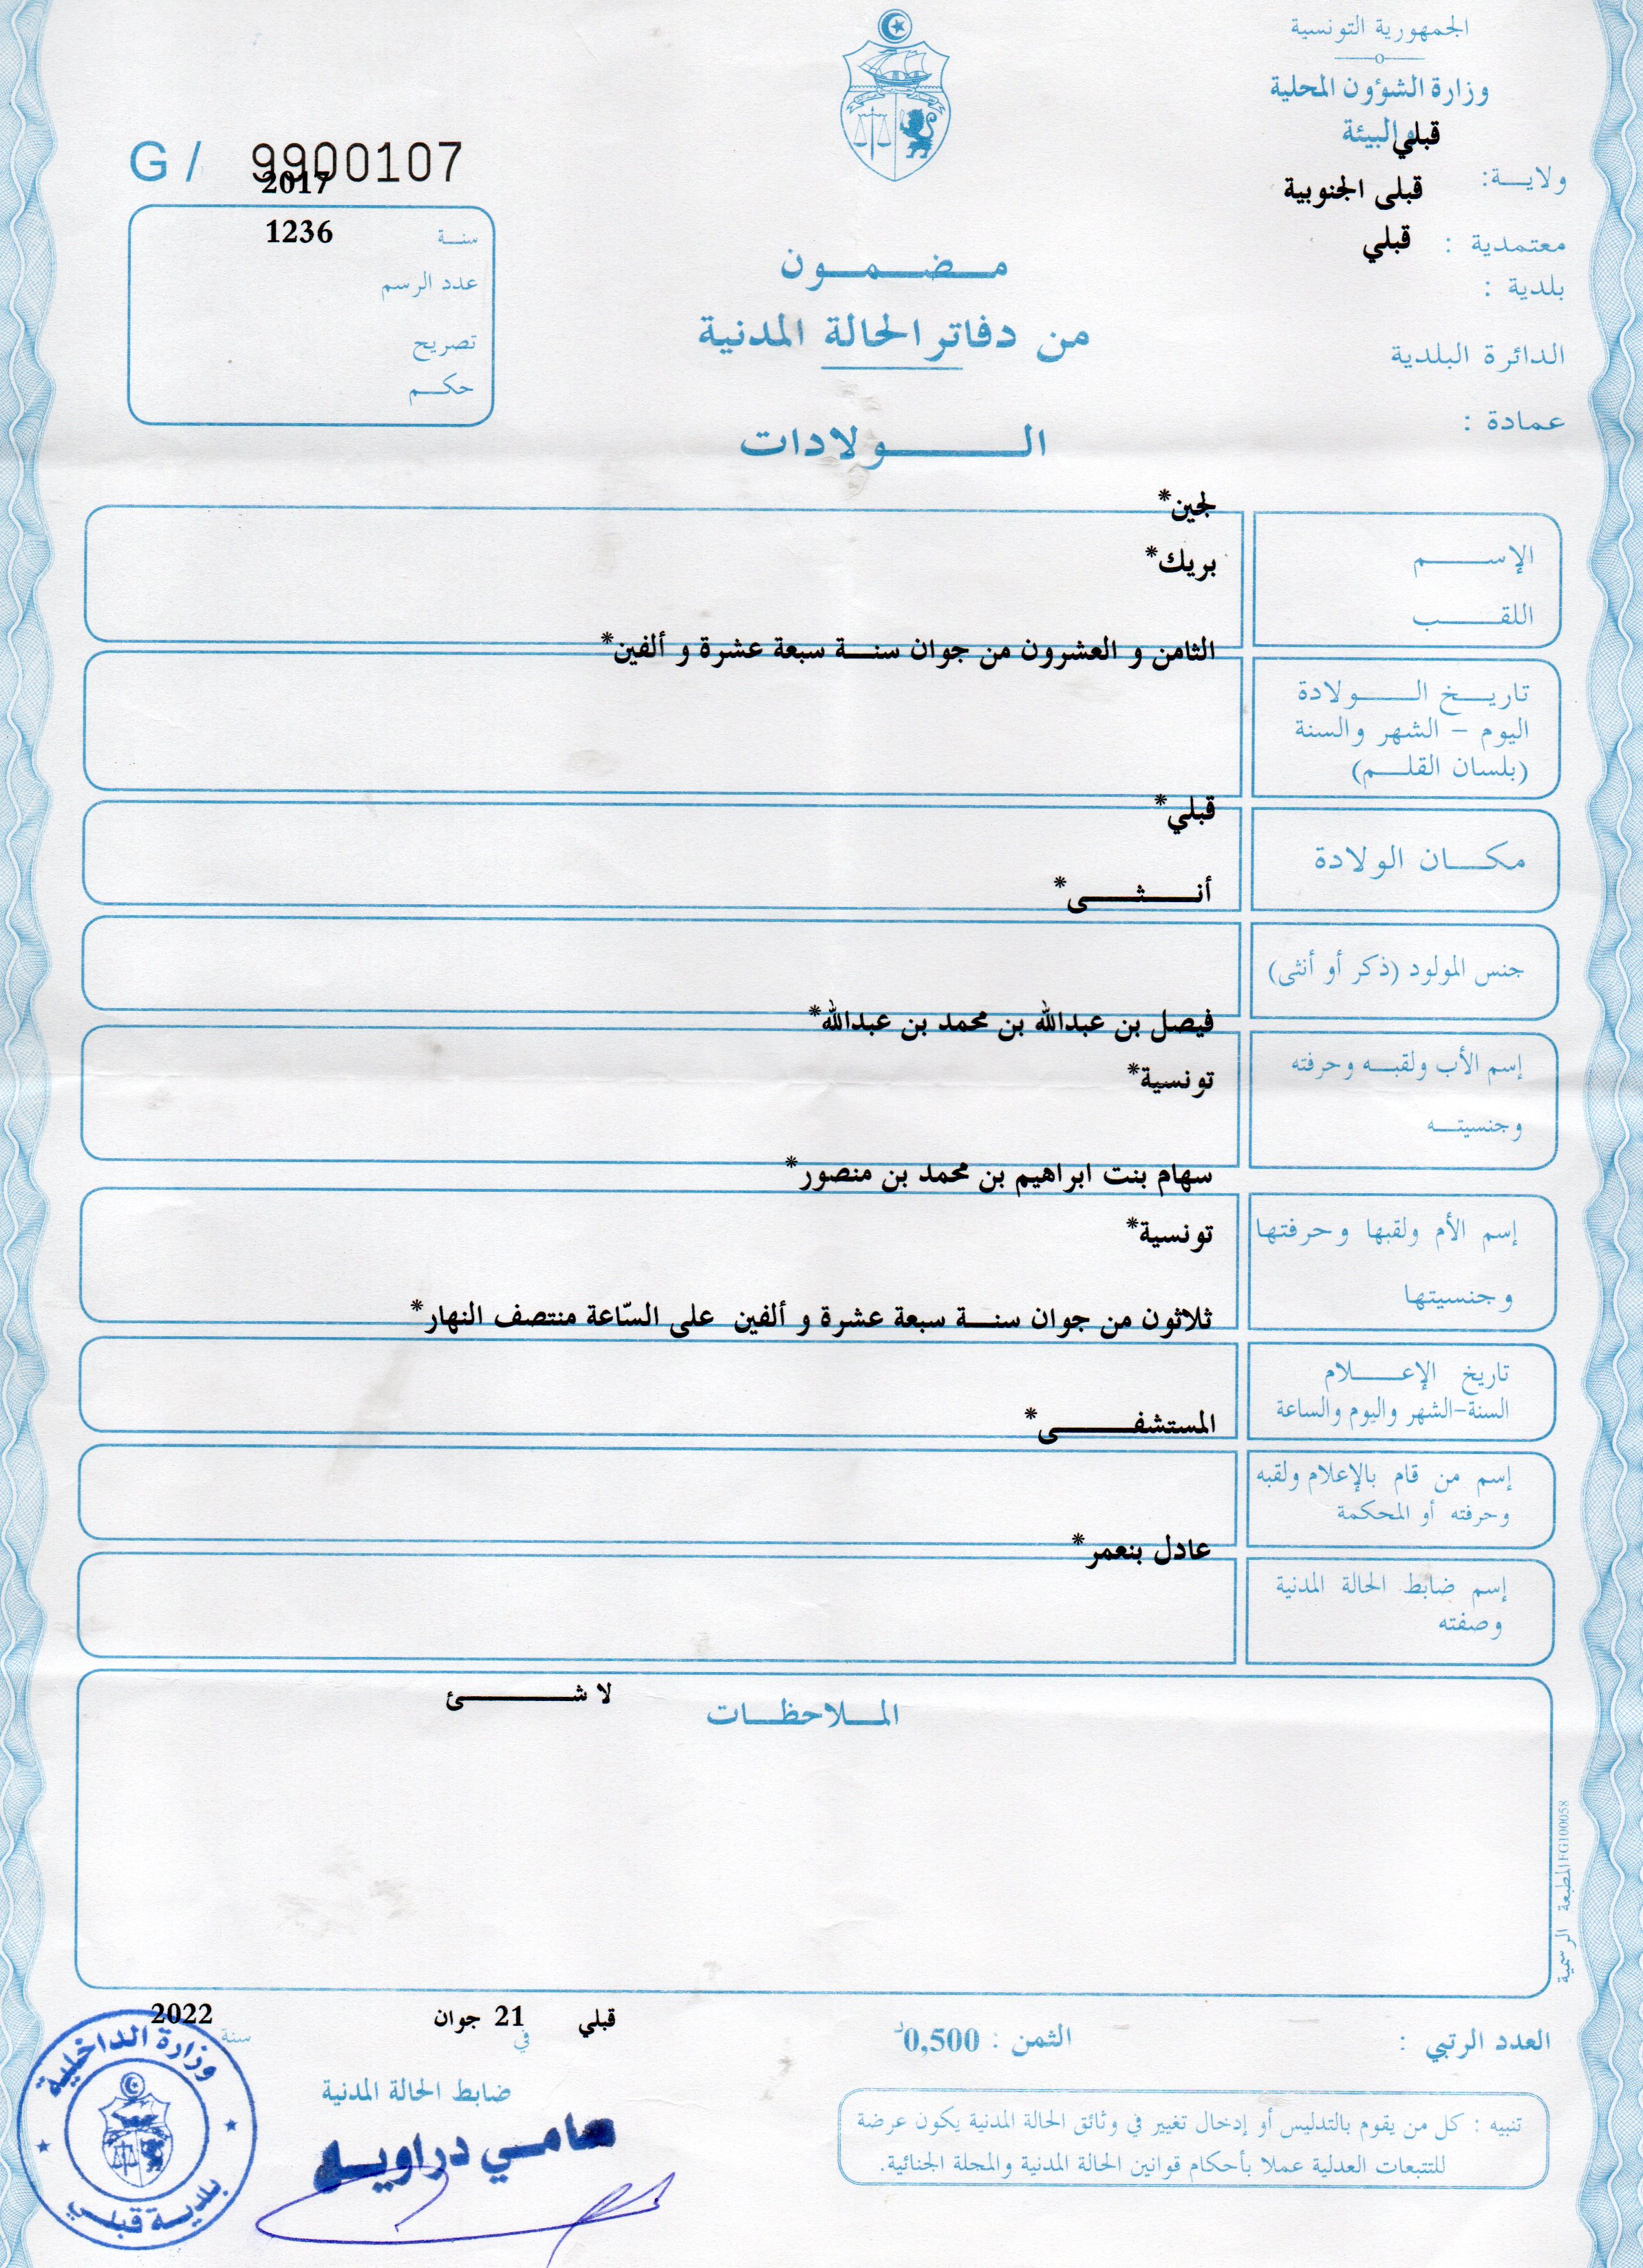 الجمهورية التونسية
وزارة الشؤون المحلية
والبيئة
قبلي
ولايـــة:
قبلى الجنوبية
معتمدية :
قبلي
بلدية :
الدائرة البلدية
عمادة :
G / 9900107
2017
سنـة
1236
عدد الرسم
تصريح
حكـم
مـضـمـون
من دفاتر الحالة المدنية
الـــولادات
لجين*
الإســـم
بريك*
اللقـــب
الثامن و العشرون من جوان سنـــة سبعة عشرة و ألفين*
تاريـــخ الـــولادة
اليوم – الشهر والسنة
(بلسان القلـــم)
قبلي*
مكـــان الولادة
أنـــثـــى*
جنس المولود (ذكر أو أنثى)
فيصل بن عبدالله بن محمد بن عبدالله*
إسم الأب ولقبـــه وحرفته
تونسية*
وجنسيتـــه
سهام بنت ابراهيم بن محمد بن منصور*
إسم الأم ولقبها وحرفتها
تونسية*
وجنسيتها
ثلاثون من جوان سنـــة سبعة عشرة و ألفين على السّاعة منتصف النهار*
تاريخ الإعـــلام
السنة-الشهر واليوم والساعة
المستشفـــى*
إسم من قام بالإعلام ولقبه
وحرفته أو المحكمة
عادل بنعمر*
إسم ضابط الحالة المدنية
وصفته
لا شـــئ
المـلاحظـات
المطبعة الرسمية FG100058
قبلي في 21 جوان سنة 2022
العدد الرتبي :
الثمن : 0,500د
ضابط الحالة المدنية
سامي دراويـل
وزارة الداخلية
بلديـة قبلـي
تنبيه : كل من يقوم بالتدليس أو إدخال تغيير في وثائق الحالة المدنية يكون عرضة
للتتبعات العدلية عملا بأحكام قوانين الحالة المدنية والمجلة الجنائية.